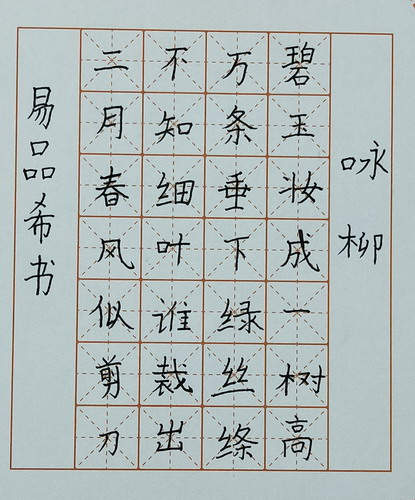 咏柳
碧玉妆成一树高
万条垂下绿丝绦
不知细叶谁裁出
二月春风似剪刀
易品希书